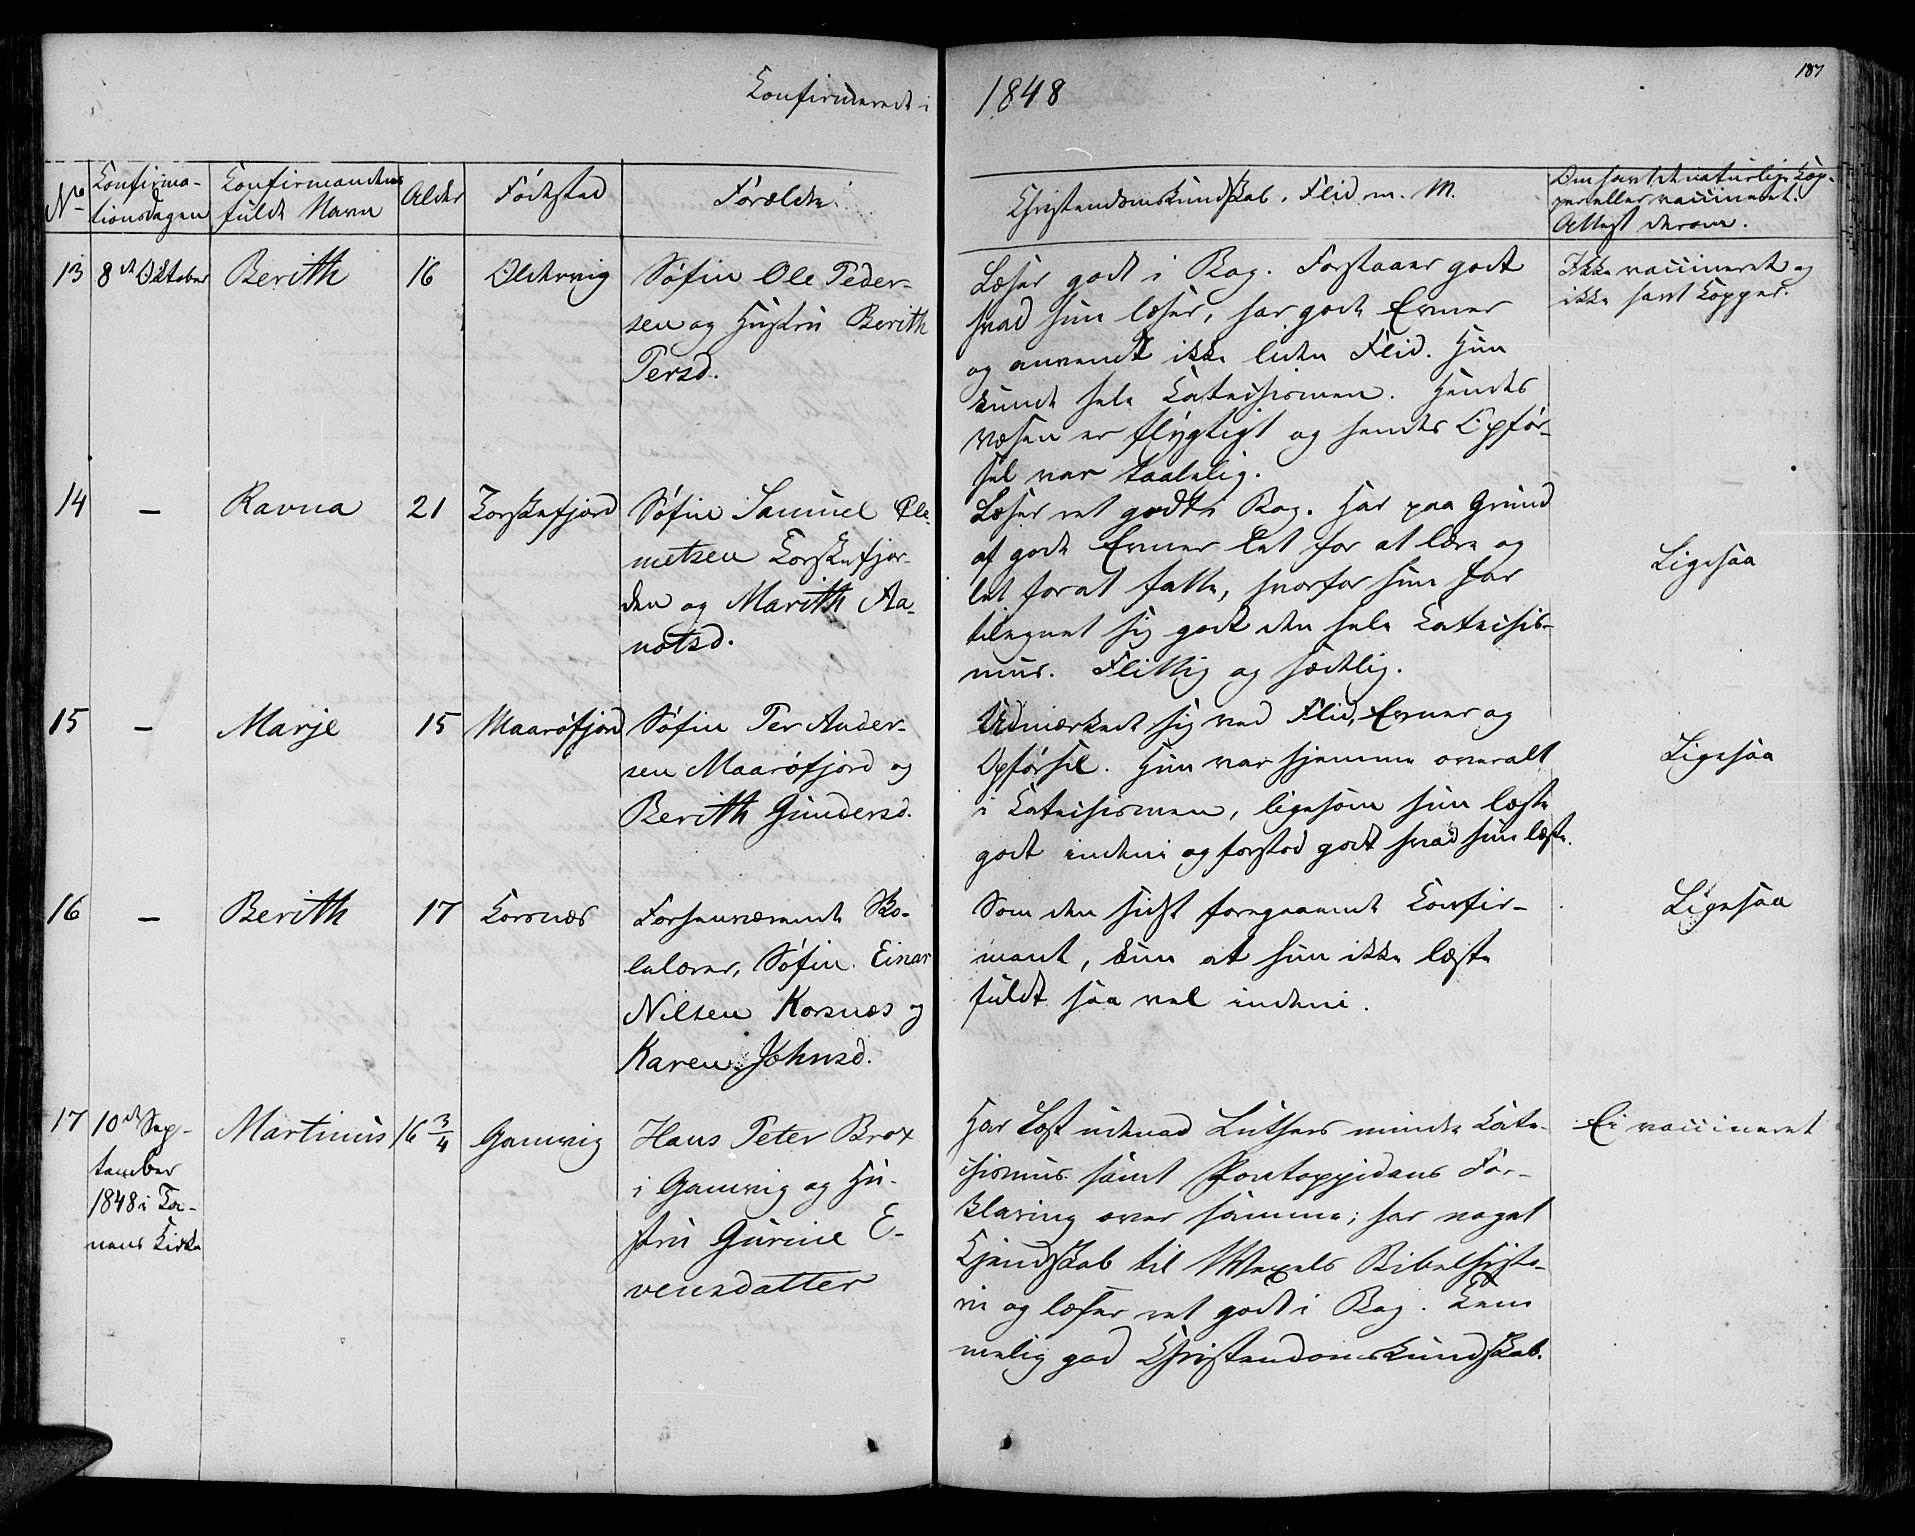 Confirmerede i 1848
187
No
Confirma-
tionsdagen
Confirmandens
fulde Navn
Alder
Fødested
Forældre
Christendomskundskab, Flid m. M.
Om havt de naturlige Kop-
per eller vaccineret.
Attest derom.
13 8de Oktober Berith 16
Søfin Ole Peder-
sen og Hustru Berith
Persd.
Læser godt i Bog. Forstaaer godt
hvad hun læser, har gode Evner
og anvendt ikke liden Flid. Hun
kunde hele Catechismen. Hendes
Væsen er flygtigt og hendes Opfør-
sel var taalelig.
Ikke vaccineret og
ikke havt Kopper.
14 - Ravna 21 Torskefjord
Søfin Samuel Cle-
metsen Torskefjor-
den og Marith Aa-
notsd.
Læser ret godt i Bog. Har paa Grund
af gode Evner let for at lære og
let forat fatte, hvorfor hun har
tilegnet sig godt den hele Catechis-
mus. Flittig og sædelig.
Ligesaa
15 - Marje 15 Maarøfjord
Søfin Per Ander-
sen Maarøfjord og
Berith Gundersd.
Udmærkede sig ved Flid, Evner og
Opførsel. Hun var hjemme overalt
i Catechismen, ligesom hun læste
godt indeni og forstod godt hvad hun læste.
Ligesaa
16 - Berith 17 Korsnæs
Forhenværende Sko-
lelærer, Søfin Einar
Nilsen Korsnæs og
Karen Johnsd.
Som den sidst foregaaende Confir-
mant, kun at hun ikke læste
fuldt saa vel indeni.
Ligesaa
17 10de Sep-
tember
1848 i
Kirke
Martinus 16 3/4 Gamvig
Hans Peter Brox
i Gamvig og Hu-
stru Gurine E-
vensdatter
Har læst udenad Luthers mindre Cate-
chismus samt Pontoppidans For-
klaring over samme; har noget
Kjendskab til Wexels Bibelhisto-
rie og læser ret godt i Bog. Tem
melig god Christendomskundskab.
Ei vaccineret